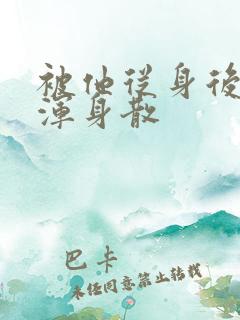 被他从身后
渾身散
巴卡
未经同意禁止转载